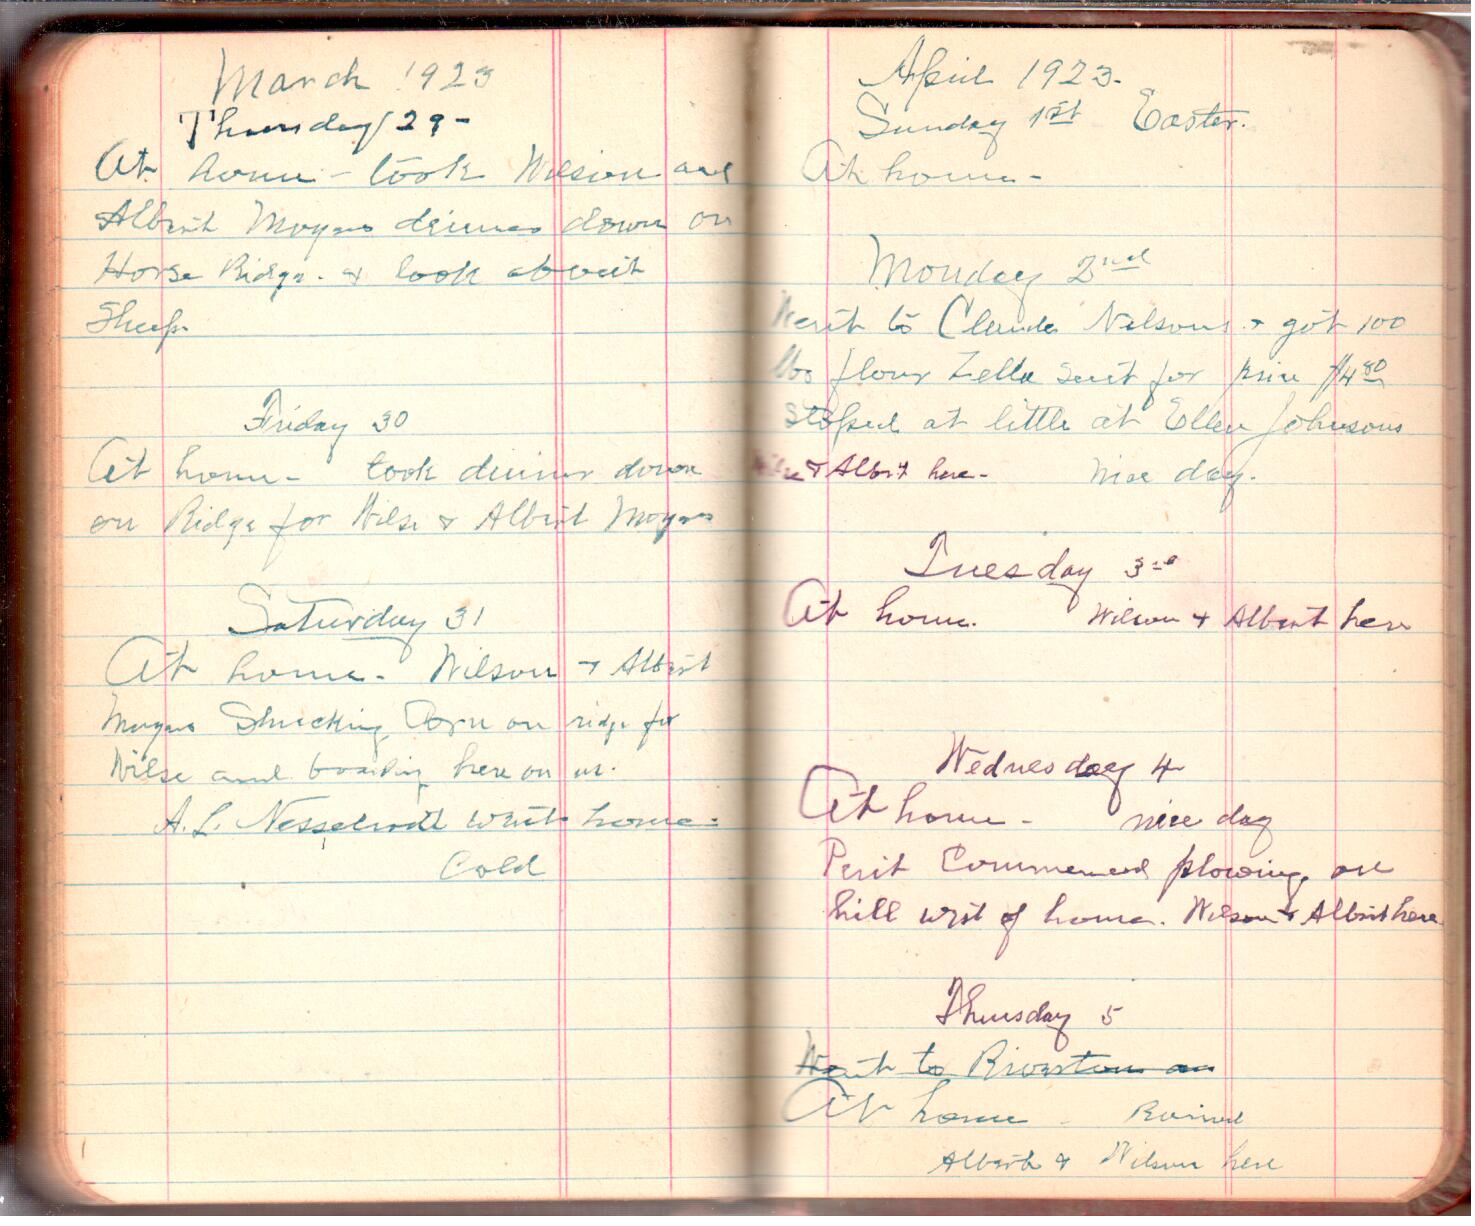 March 1923
Thursday 29-
At home - took Wilson and
Albert Moyers dinner down on
Horse Ridge. & look about
Sheep.
Friday 30
At home - took dinner down
on Ridge for Wilse & Albert Moyers
Saturday 31
At home - Wilson & Albert
Moyers Shucking Corn on ridge for
Wilse and boarding here on us.
A. L. Nesselrodt went home -
Cold
April 1923.
Sunday 1st Easter.
At home -
Monday 2nd
Went to Claude Nelsons & got 100
lbs flour Zella sent for price $4.80
Stoped at little at Ellen Johnsons
Wilse & Albert here - nice day.
Tuesday 3rd
At home. Wilson & Albert here
Wednesday 4
At home - nice day
Perit Commenced plowing on
hill west of home. Wilson & Albert here
Thursday 5
Went to Riverton on
At home - Rained
Albert & Wilson here